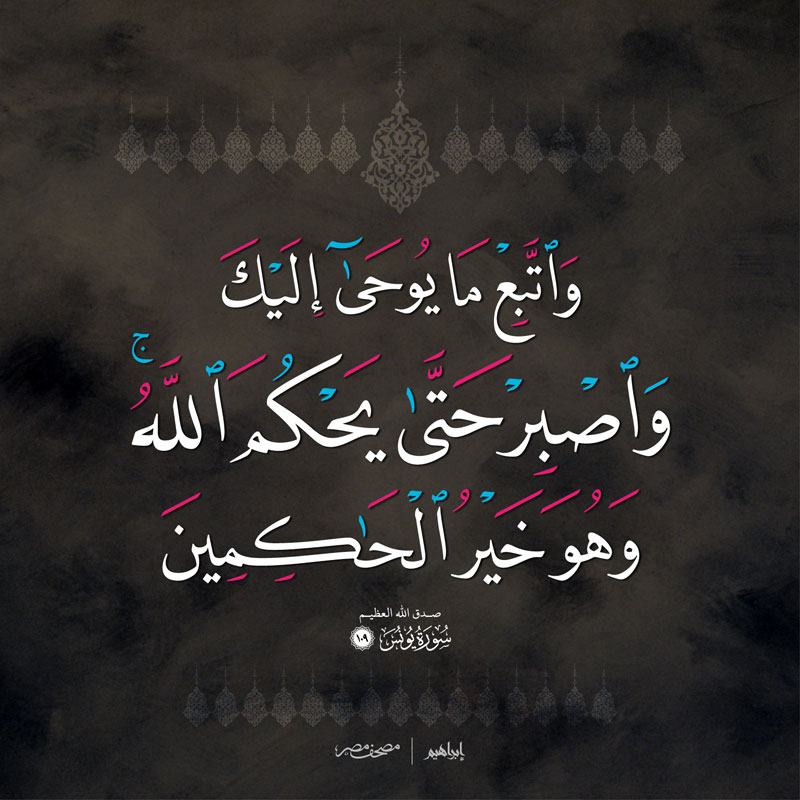 وَٱتَّبِعْ مَا يُوحَىٰٓ إِلَيْكَ
وَٱصْبِرْ حَتَّىٰ يَحْكُمَ ٱللَّهُ ۚ
وَهُوَ خَيْرُ ٱلْحَٰكِمِينَ
صدق الله العظيم
سُورَةُ يُونُسَ ١٠٩
إبراهيم | مصحف مصر